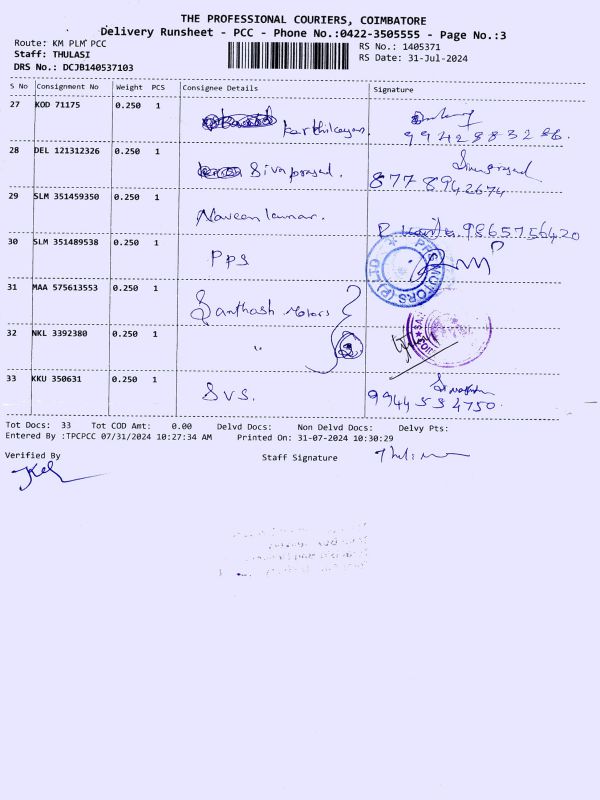 THE PROFESSIONAL COURIERS, COIMBATORE
Delivery Runsheet - PCC - Phone No.:0422-3505555 - Page No.:3
Route: KM PLM PCC
RS No.: 1405371
Staff: THULASI
RS Date: 31-Jul-2024
DRS No.: DCJB140537103
S No Consignment No Weight PCS Consignee Details Signature
27 KOD 71175 0.250 1 Karthikeyan.
28 DEL 121312326 0.250 1 Sivaprasad. Sivaprasad
877 8942674
29 SLM 351459350 0.250 1 Naveen kumar. 9865756420
30 SLM 351489538 0.250 1 PPS
PPS MOTORS (P) LTD
31 MAA 575613553 0.250 1 Santhash Motors
32 NKL 3392380 0.250 1 "
33 KKU 350631 0.250 1 SVS.
9944534750.
Tot Docs: 33 Tot COD Amt: 0.00 Delvd Docs: Non Delvd Docs: Delvy Pts:
Entered By :TPCPCC 07/31/2024 10:27:34 AM Printed On: 31-07-2024 10:30:29
Verified By Staff Signature